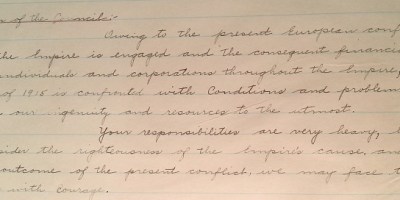 of the Council:-
Owing to the present European conf
the Empire is engaged and the consequent financia
individuals and corporations throughout the Empire,
of 1915 is confronted with Conditions and problem
our ingenuity and resources to the utmost.
Your responsibilities are very heavy,
sider the righteousness of the Empire's cause, and
outcome of the present conflict, we may face t
with courage.